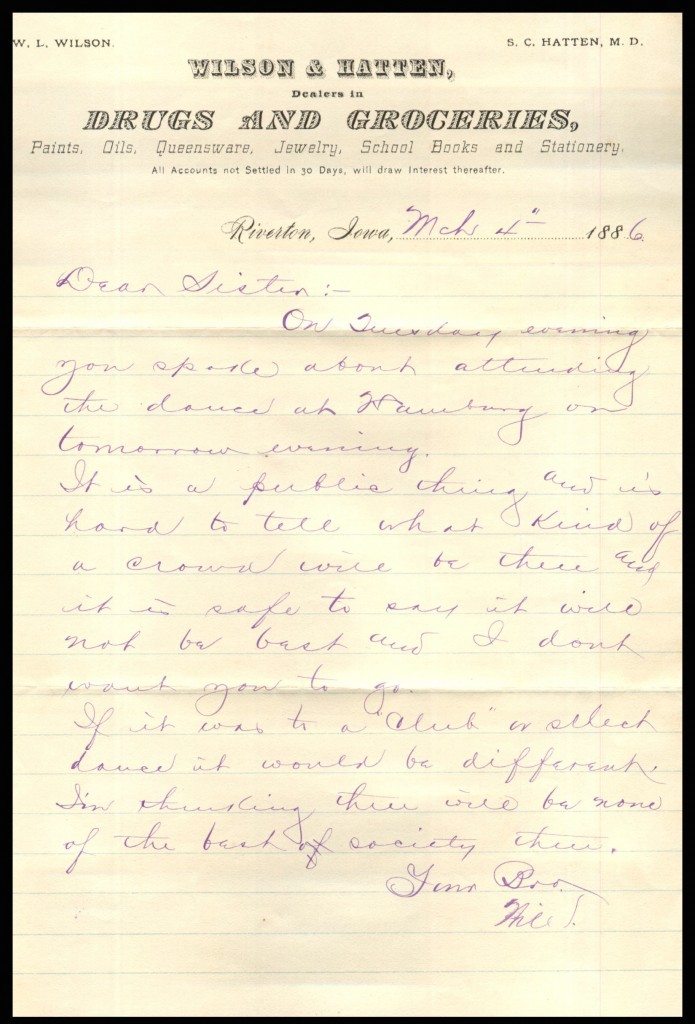 W. L. WILSON. S. C. HATTEN, M. D.
WILSON & HATTEN,
Dealers in
DRUGS AND GROCERIES,
Paints, Oils, Queensware, Jewelry, School Books and Stationery.
All Accounts not Settled in 30 Days, will draw Interest thereafter.
Riverton, Iowa, Mch 4" 1886.
Dear Sister:-
On Tuesday evening
you spoke about attending
the dance at Hamburg on
tomorrow evening.
It is a public thing and is
hard to tell what kind of
a crowd will be there and
it is safe to say it will
not be best and I dont
want you to go.
If it was to a "Club" or select
dance it would be different.
I'm thinking there will be none
of the best of society there.
Your Bro.
Will.